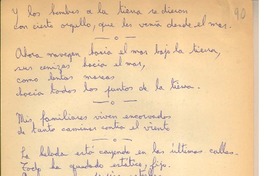 Y los hombres a la tierra se dieron
con cierto orgullo, que les venía desde el mar.
90
—o—
Ahora navegan hacia el mar bajo la tierra,
sus cenizas hacia el mar,
como lentas mareas
hacia todos los puntos de la tierra.
—o—
Mis familiares viven encorvados
de tanto caminar contra el viento
—o—
La helada está cayendo en las últimas calles.
Todo ha quedado estático, fijo.